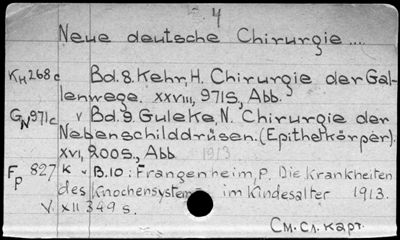 4
Neue deutsche Chirurgie ....
KH268c Bd. 8. Kehr, H. Chirurgie der Gal-
lenwege. XXVIII, 971S, Abb.
GN971c v Bd. 9. Guleke, N. Chirurgie der
Nebenschilddrüsen. (Epithelkörper).
XVI, 200S., Abb 1913.
Fp 827 K v B.10: Frangenheim, P. Die Krankheiten
des Knochensystems im Kindesalter 1913.
V. XII 349 s.
См. сл. карт.